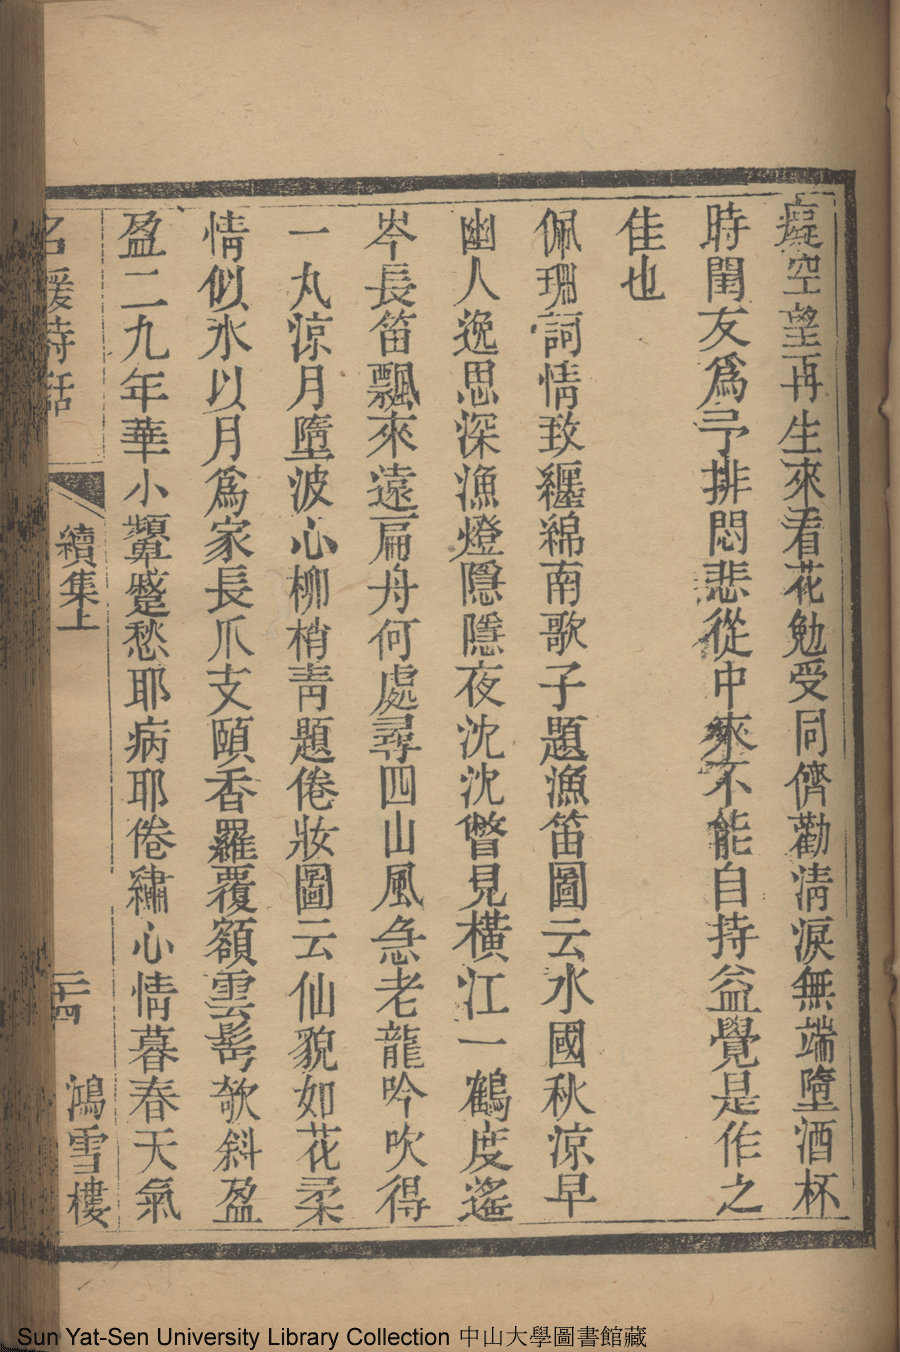 癡空望再生來看花勉受同儕勸淸淚無端墮酒杯
時閨友爲予排悶悲從中來不能自持益覺是作之
佳也
佩珊詞情致纏綿南歌子題漁笛圖云水國秋涼早
幽人逸思深漁燈隱隱夜沈沈瞥見橫江一鶴度遙
岑長笛飄來遠扁舟何處尋四山風急老龍吟吹得
一丸涼月墮波心柳梢靑題倦妝圖云仙貌如花柔
情似水以月爲家長爪支頤香羅覆額雲髩欹斜盈
盈二九年華小顰蹙愁耶病耶倦繡心情暮春天氣
名媛詩話
續集上
二十四
鴻雪樓
Sun Yat-Sen University Library Collection 中山大學圖書館藏